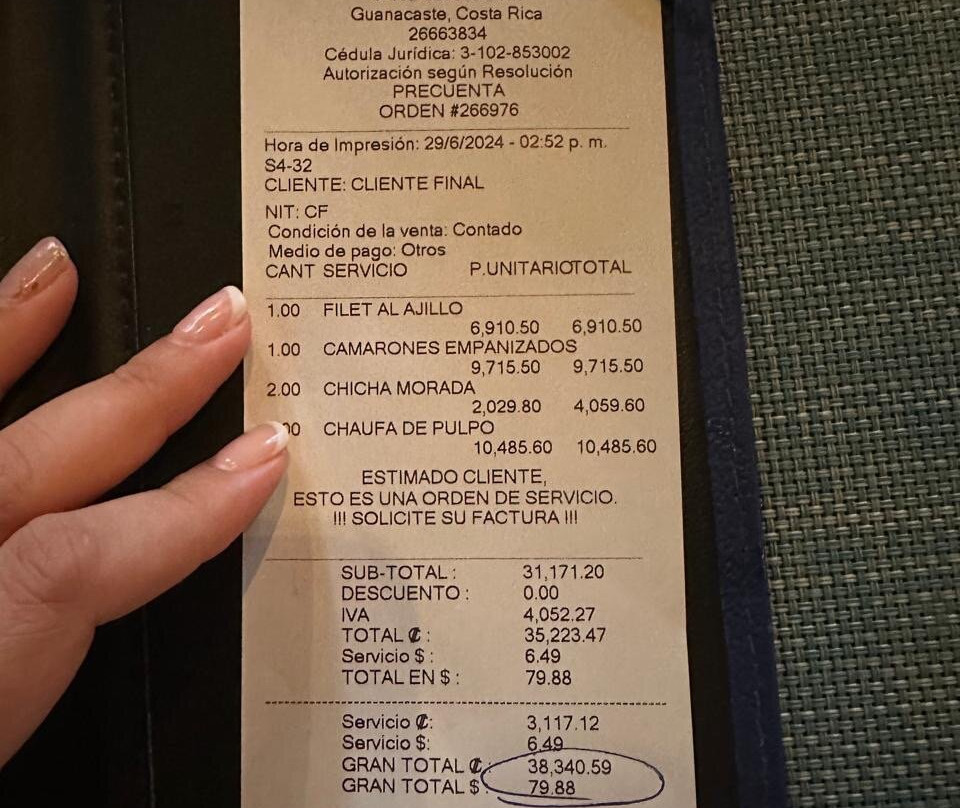 Guanacaste, Costa Rica
26663834
Cédula Jurídica: 3-102-853002
Autorización según Resolución
PRECUENTA
ORDEN #266976
Hora de Impresión: 29/6/2024 - 02:52 p. m.
S4-32
CLIENTE: CLIENTE FINAL
NIT: CF
Condición de la venta: Contado
Medio de pago: Otros
CANT SERVICIO P.UNITARIOTOTAL
1.00 FILET AL AJILLO
6,910.50 6,910.50
1.00 CAMARONES EMPANIZADOS
9,715.50 9,715.50
2.00 CHICHA MORADA
2,029.80 4,059.60
00 CHAUFA DE PULPO
10,485.60 10,485.60
ESTIMADO CLIENTE,
ESTO ES UNA ORDEN DE SERVICIO.
!!! SOLICITE SU FACTURA !!!
SUB-TOTAL : 31,171.20
DESCUENTO : 0.00
IVA 4,052.27
TOTAL ₡ : 35,223.47
Servicio $ : 6.49
TOTAL EN $ : 79.88
Servicio ₡: 3,117.12
Servicio $: 6.49
GRAN TOTAL ₡: 38,340.59
GRAN TOTAL $: 79.88